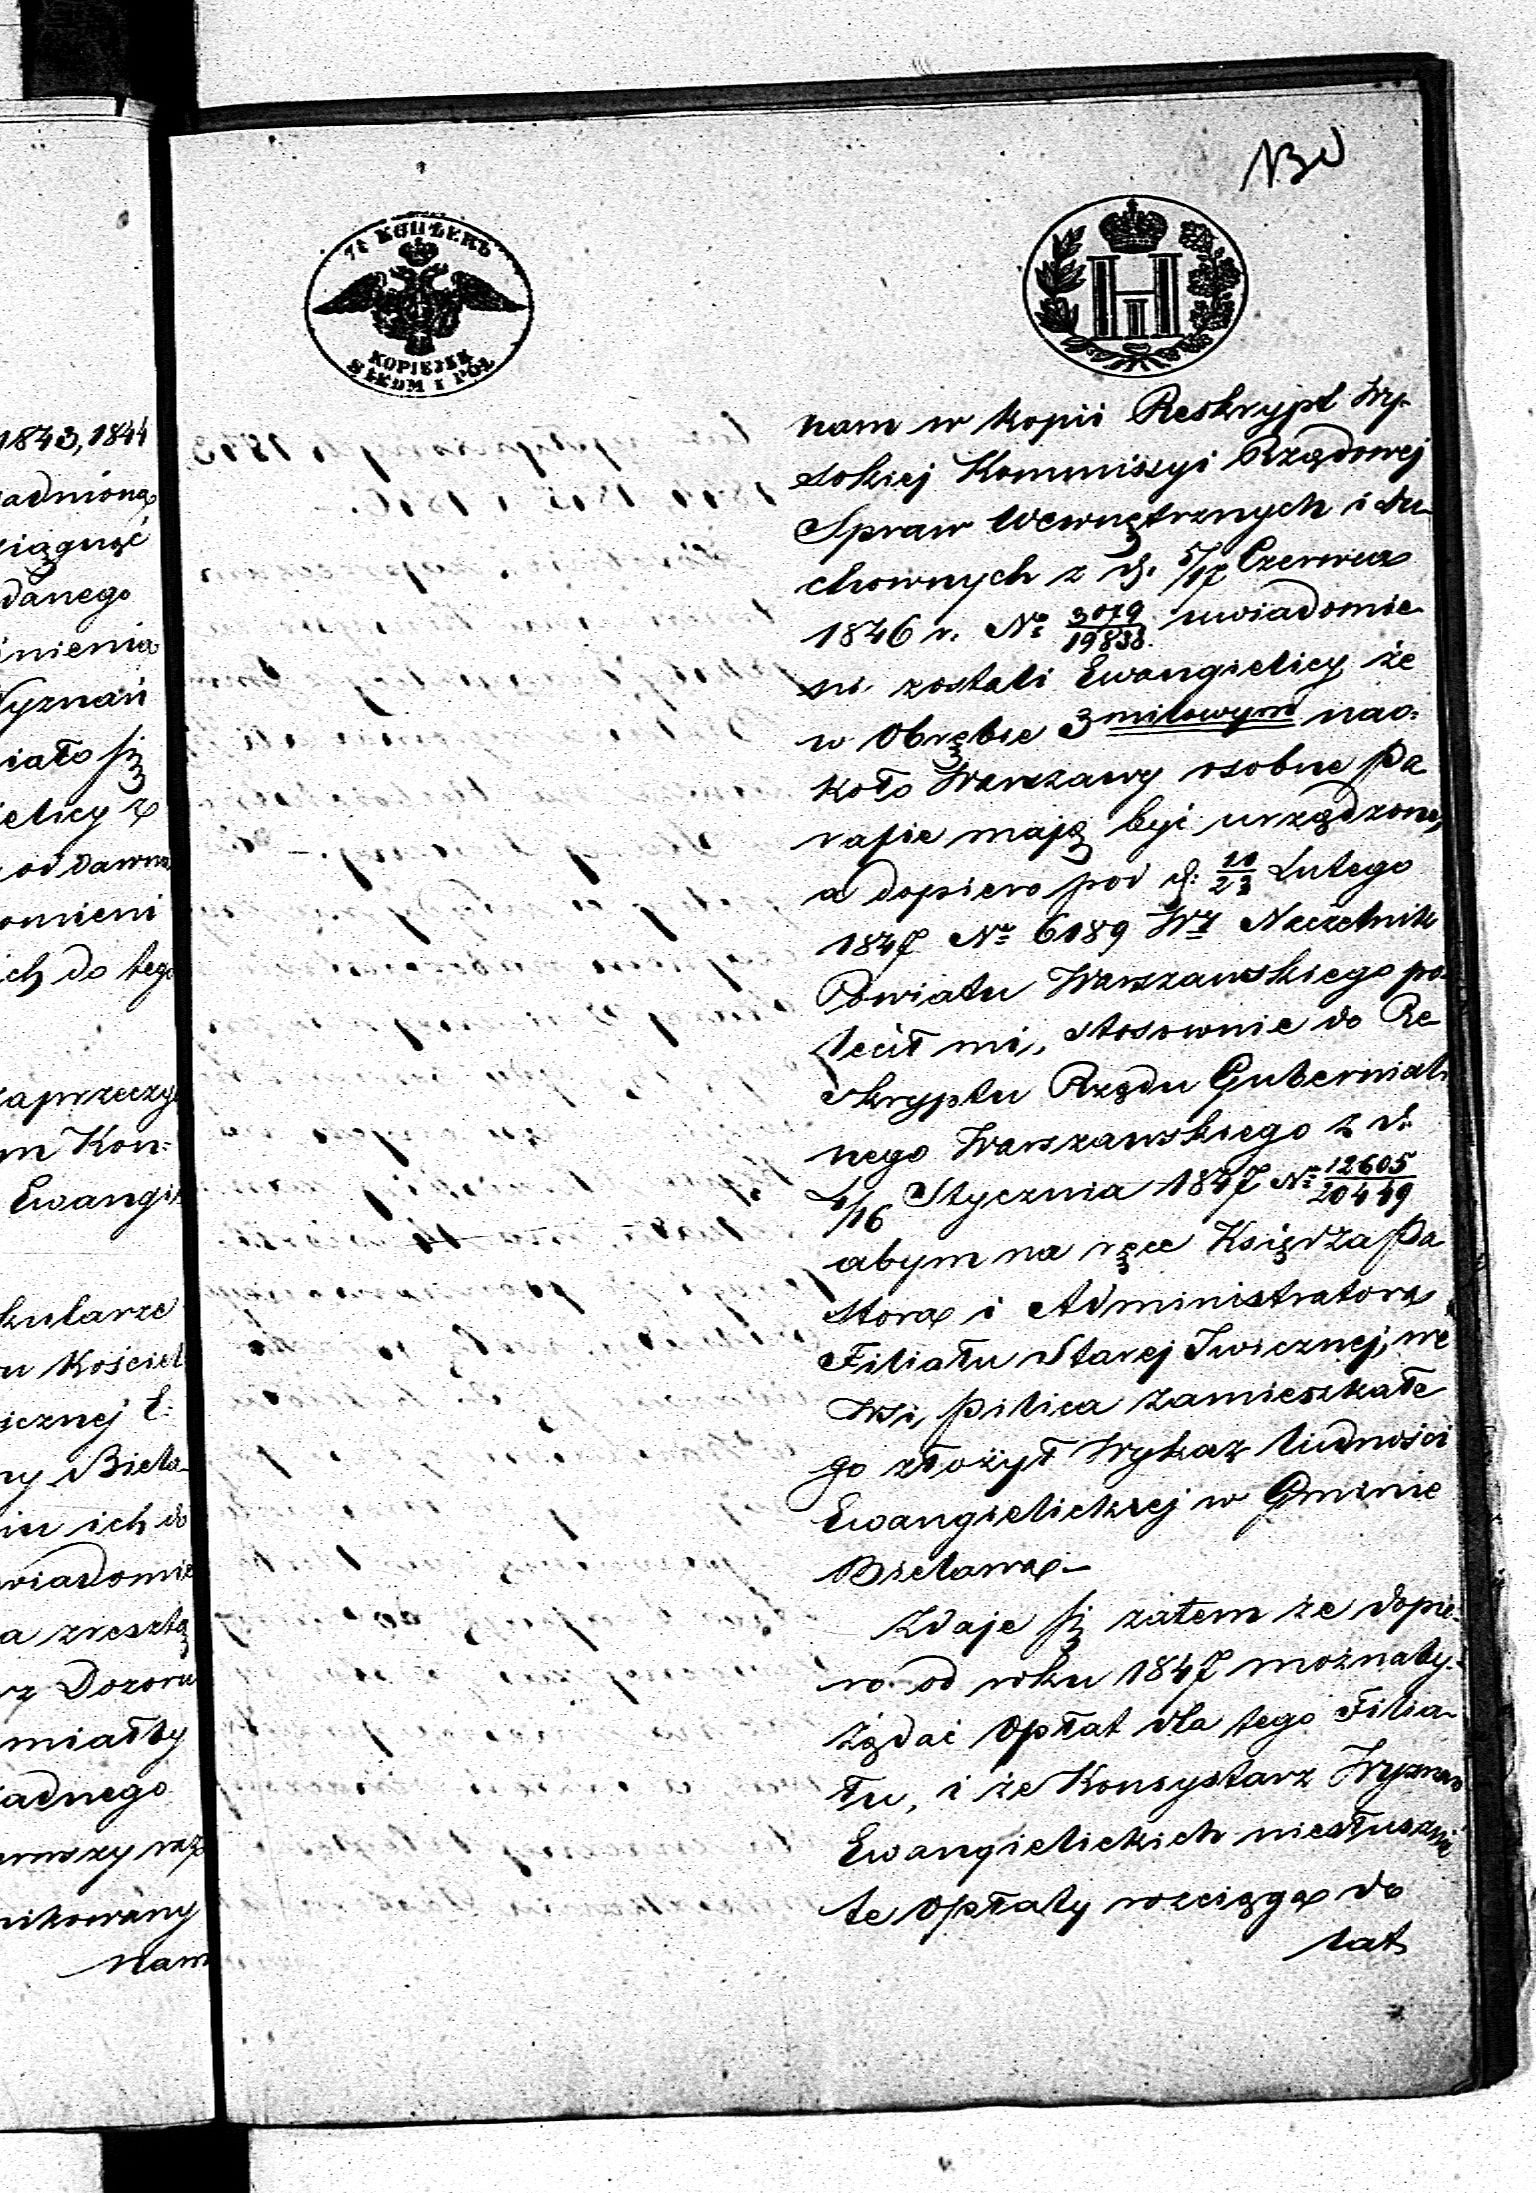 130
7½ КОПѢЕКЪ
KOPIEJEK
SIEDM I PÓŁ
1843, 1844
adnioną
ciągnąć
danego
śnienia
Wyznań
iało się
ielicy z
od dawna
omieni
ich do tego
zaprzeczyć
m Kon:
Ewangie
kularze
u Kościel
icznej E:
ny Biela
iu ich do
wiadomie
a zresztą
rz Dozoru
miałby
adnego
erwszy raz
nikowany
nam
nam w kopii Reskrypt Wy-
sokiej Kommissyi Rządowej
Spraw Wewnętrznych i du-
chownych z d. 5/17 Czerwca
1846 r. No 3079/19838. uwiadomie
ni zostali Ewangielicy że
w Obrębie 3 milowym nao-
koło Warszawy osobne Pa
rafie mają być urządzone,
a dopiero pod d: 11/23 Lutego
1847 No 6189 Wy Naczelnik
Powiatu Warszawskiego po-
lecił mi, stosownie do Re
skryptu Rządu Gubernial-
nego Warszawskiego z d.
4/16 Stycznia 1847 No 12605/20449
abym na ręce Księdza Pa
stora i Administratora
Filiału Starej Iwicznej, we
Wsi Pilica zamieszkałe
go złożył Wykaz ludności
Ewangielickiej w Gminie
Bielawa.-
Zdaje się zatem że dopie-
ro od roku 1847 możnaby-
żądać Opłat dla tego Filia-
łu, i że Konsystarz Wyznań
Ewangielickich niesłusznie
te Opłaty rozciąga do
lat